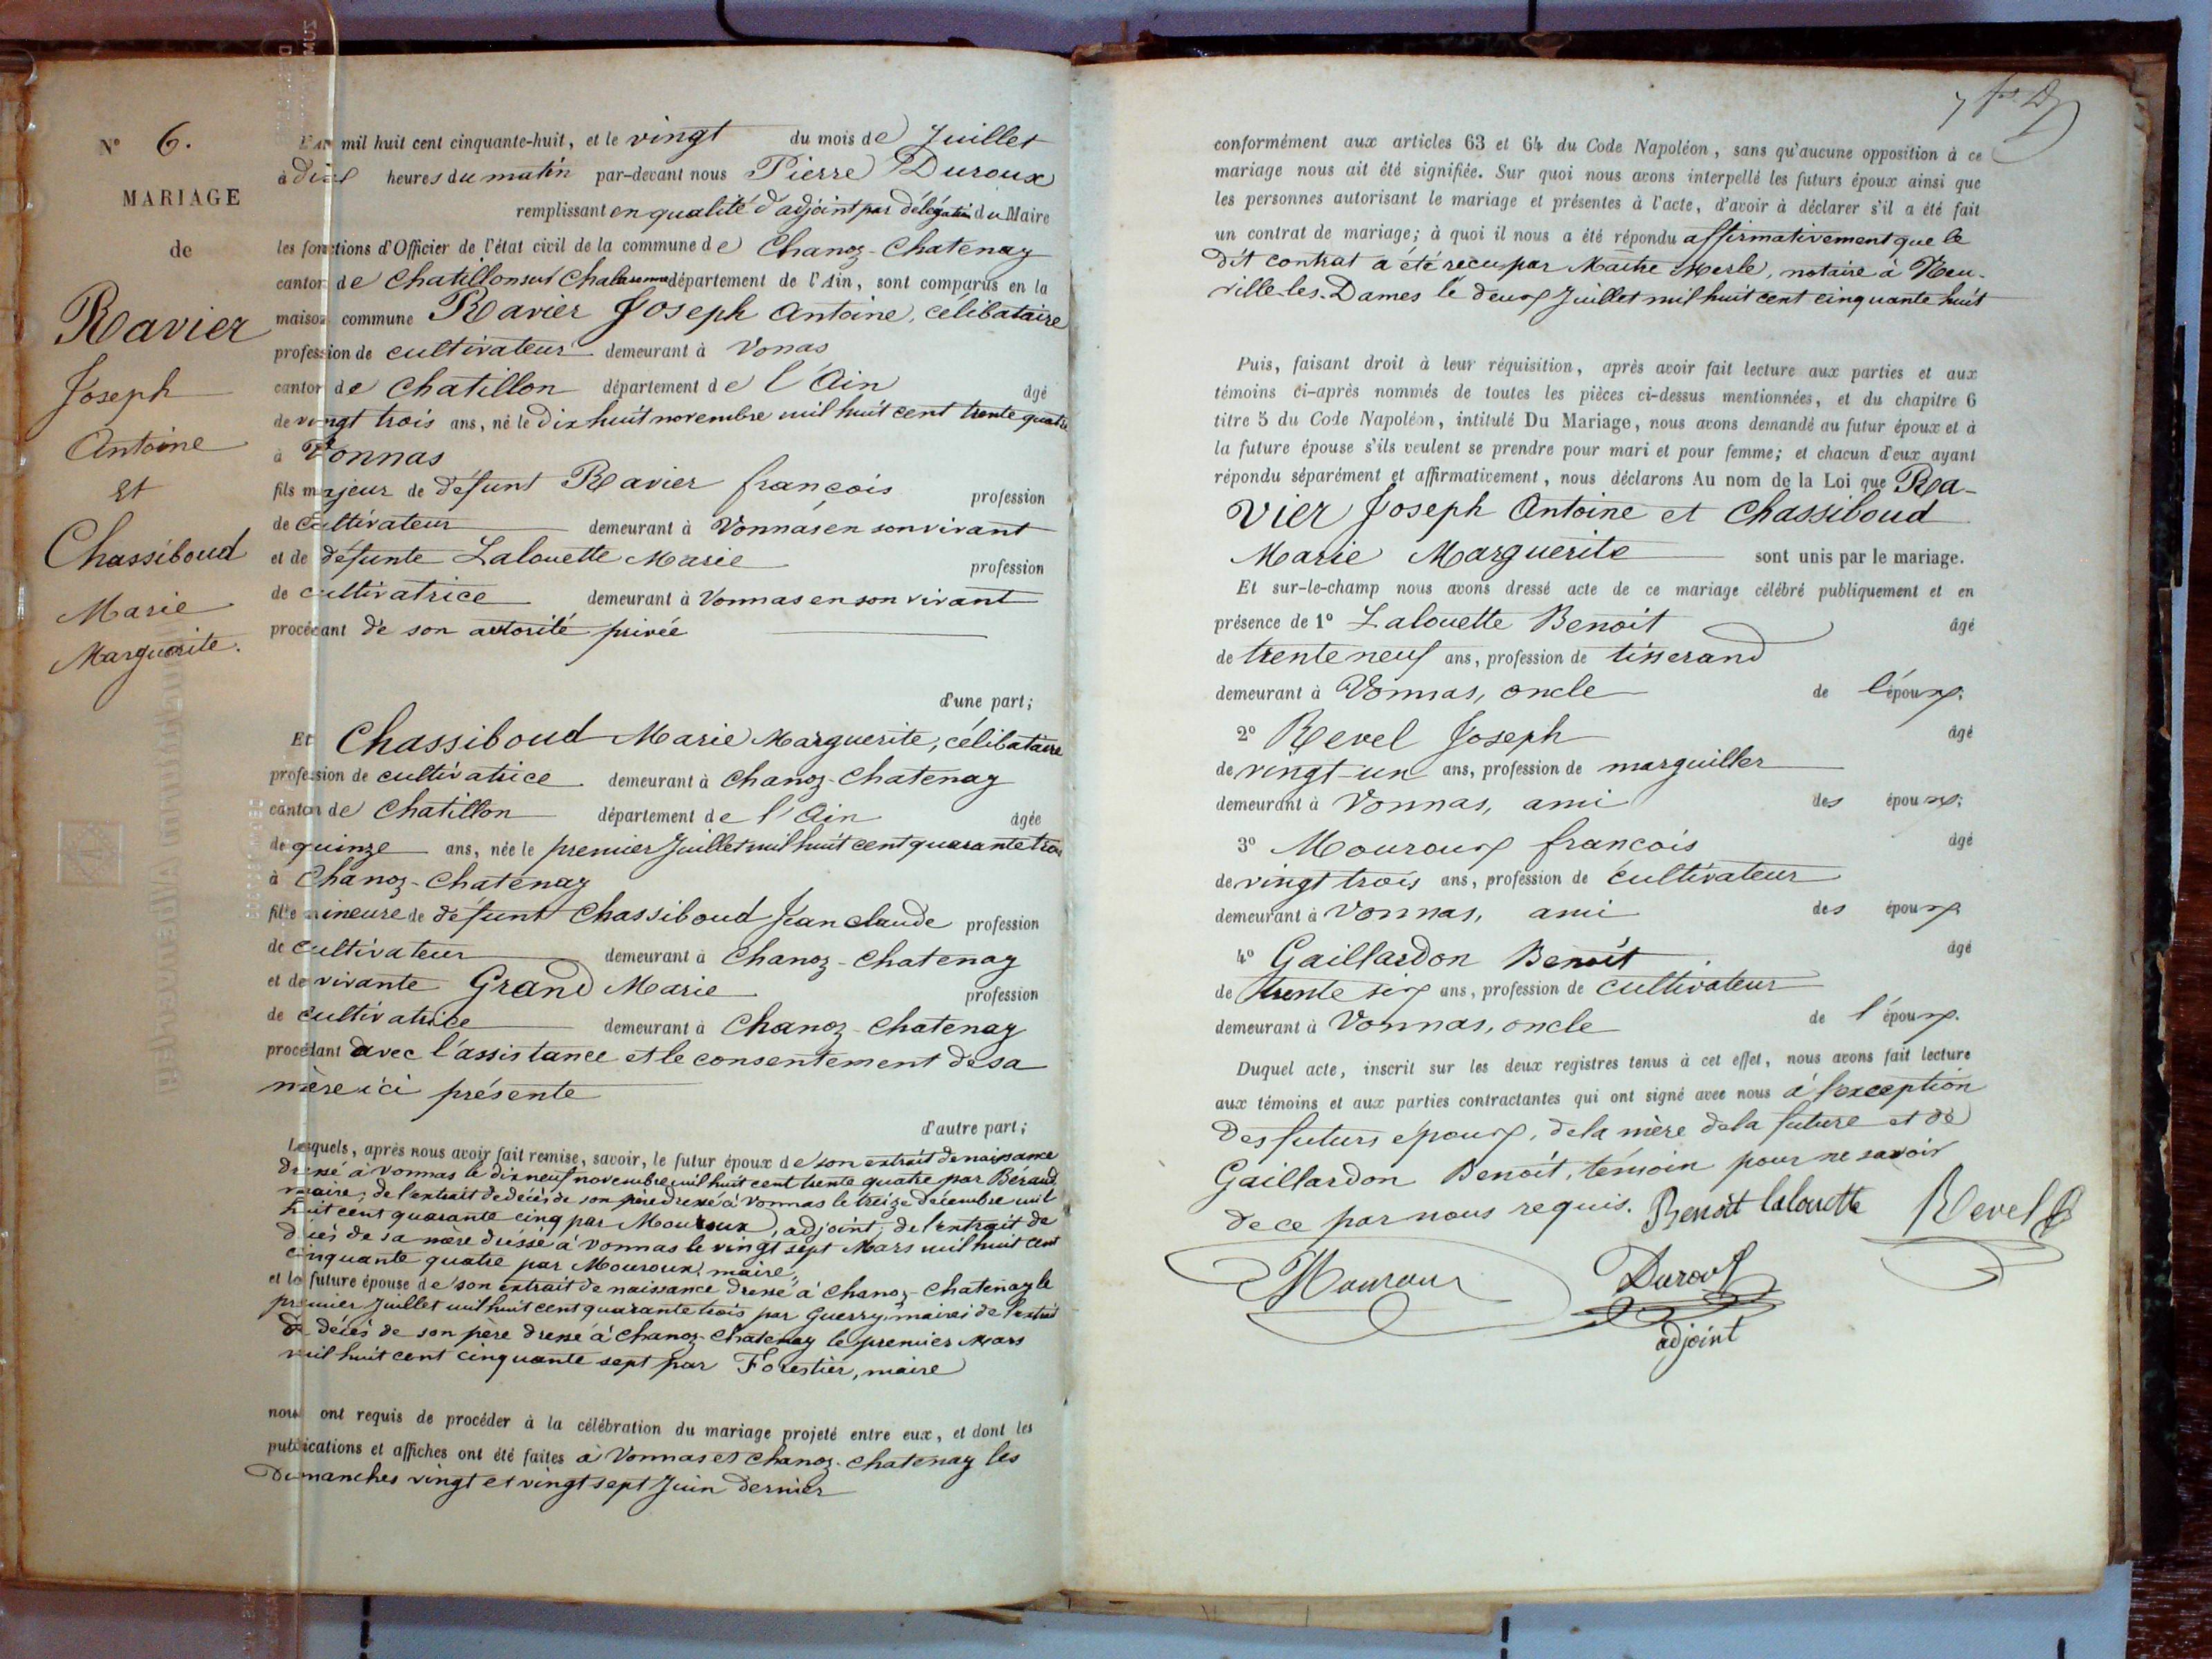 N° 6.
MARIAGE
de
Ravier
Joseph
Antoine
Et
Chassiboud
Marie
Marguerite.
L'an mil huit cent cinquante-huit, et le vingt du mois de Juillet
à dix heures du matin par-devant nous Pierre Duroux
remplissant en qualité d'adjoint par délégation du Maire
les fonctions d'Officier de l'état civil de la commune de Chanoz-Chatenay
canton de Chatillon sur Chalaronne département de l'Ain, sont comparus en la
maison commune Ravier Joseph Antoine, célibataire
profession de cultivateur demeurant à Vonas
canton de Chatillon département de l'Ain âgé
de vingt trois ans, né le dix huit novembre mil huit cent trente quatre
à Vonnas
fils majeur de défunt Ravier françois profession
de cultivateur demeurant à Vonnas en son vivant
et de défunte Lalouette Marie profession
de cultivatrice demeurant à Vonnas en son vivant
procédant de son autorité privée
d'une part;
Et Chassiboud Marie Marguerite, célibataire
profession de cultivatrice demeurant à Chanoz-Chatenay
canton de Chatillon département de l'Ain âgée
de quinze ans, née le premier Juillet mil huit cent quarante trois
à Chanoz-Chatenay
fille mineure de défunt Chassiboud Jean claude profession
de cultivateur demeurant à Chanoz-Chatenay
et de vivante Grand Marie profession
de cultivatrice demeurant à Chanoz-Chatenay
procédant avec l'assistance et le consentement de sa
mère ici présente
d'autre part;
Lesquels, après nous avoir fait remise, savoir, le futur époux de son extrait de naissance
dressé à Vonnas le dix neuf novembre mil huit cent trente quatre par Béraud
maire; de l'extrait de décès de son père dressé à Vonnas le treize décembre mil
huit cent quarante cinq par Mouroux, adjoint; de l'extrait de
décès de sa mère dressé à Vonnas le vingt sept Mars mil huit cent
cinquante quatre par Mouroux, maire,
et la future épouse de son extrait de naissance dressé à Chanoz-Chatenay le
premier Juillet mil huit cent quarante trois par Guerry, maire; de l'extrait
de décès de son père dressé à Chanoz-Chatenay le premier Mars
mil huit cent cinquante sept par Forestier, maire
nous ont requis de procéder à la célébration du mariage projeté entre eux, et dont les
publications et affiches ont été faites à Vonnas et Chanoz-Chatenay les
Dimanches vingt et vingt sept Juin dernier
7
conformément aux articles 63 et 64 du Code Napoléon, sans qu'aucune opposition à ce
mariage nous ait été signifiée. Sur quoi nous avons interpellé les futurs époux ainsi que
les personnes autorisant le mariage et présentes à l'acte, d'avoir à déclarer s'il a été fait
un contrat de mariage; à quoi il nous a été répondu affirmativement que le
dit contrat a été reçu par Maitre Merle, notaire à Neu-
ville-les-Dames le deux Juillet mil huit cent cinquante huit
Puis, faisant droit à leur réquisition, après avoir fait lecture aux parties et aux
témoins ci-après nommés de toutes les pièces ci-dessus mentionnées, et du chapitre 6
titre 5 du Code Napoléon, intitulé Du Mariage, nous avons demandé au futur époux et à
la future épouse s'ils veulent se prendre pour mari et pour femme; et chacun d'eux ayant
répondu séparément et affirmativement, nous déclarons Au nom de la Loi que Ra-
vier Joseph Antoine et Chassiboud
Marie Marguerite sont unis par le mariage.
Et sur-le-champ nous avons dressé acte de ce mariage célébré publiquement et en
présence de 1° Lalouette Benoit âgé
de trente neuf ans, profession de tisserand
demeurant à Vonnas, oncle de l'époux;
2° Revel Joseph âgé
de vingt-un ans, profession de marguiller
demeurant à Vonnas, ami des époux;
3° Mouroux françois âgé
de vingt trois ans, profession de cultivateur
demeurant à Vonnas, ami des époux
4° Gaillardon Benoît âgé
de trente six ans, profession de cultivateur
demeurant à Vonnas, oncle de l'époux.
Duquel acte, inscrit sur les deux registres tenus à cet effet, nous avons fait lecture
aux témoins et aux parties contractantes qui ont signé avec nous à l'exception
des futurs époux, de la mère de la future et de
Gaillardon Benoît, témoin pour ne savoir
de ce par nous requis. Benoit lalouette Revel J
Mouroux Duroux
adjoint